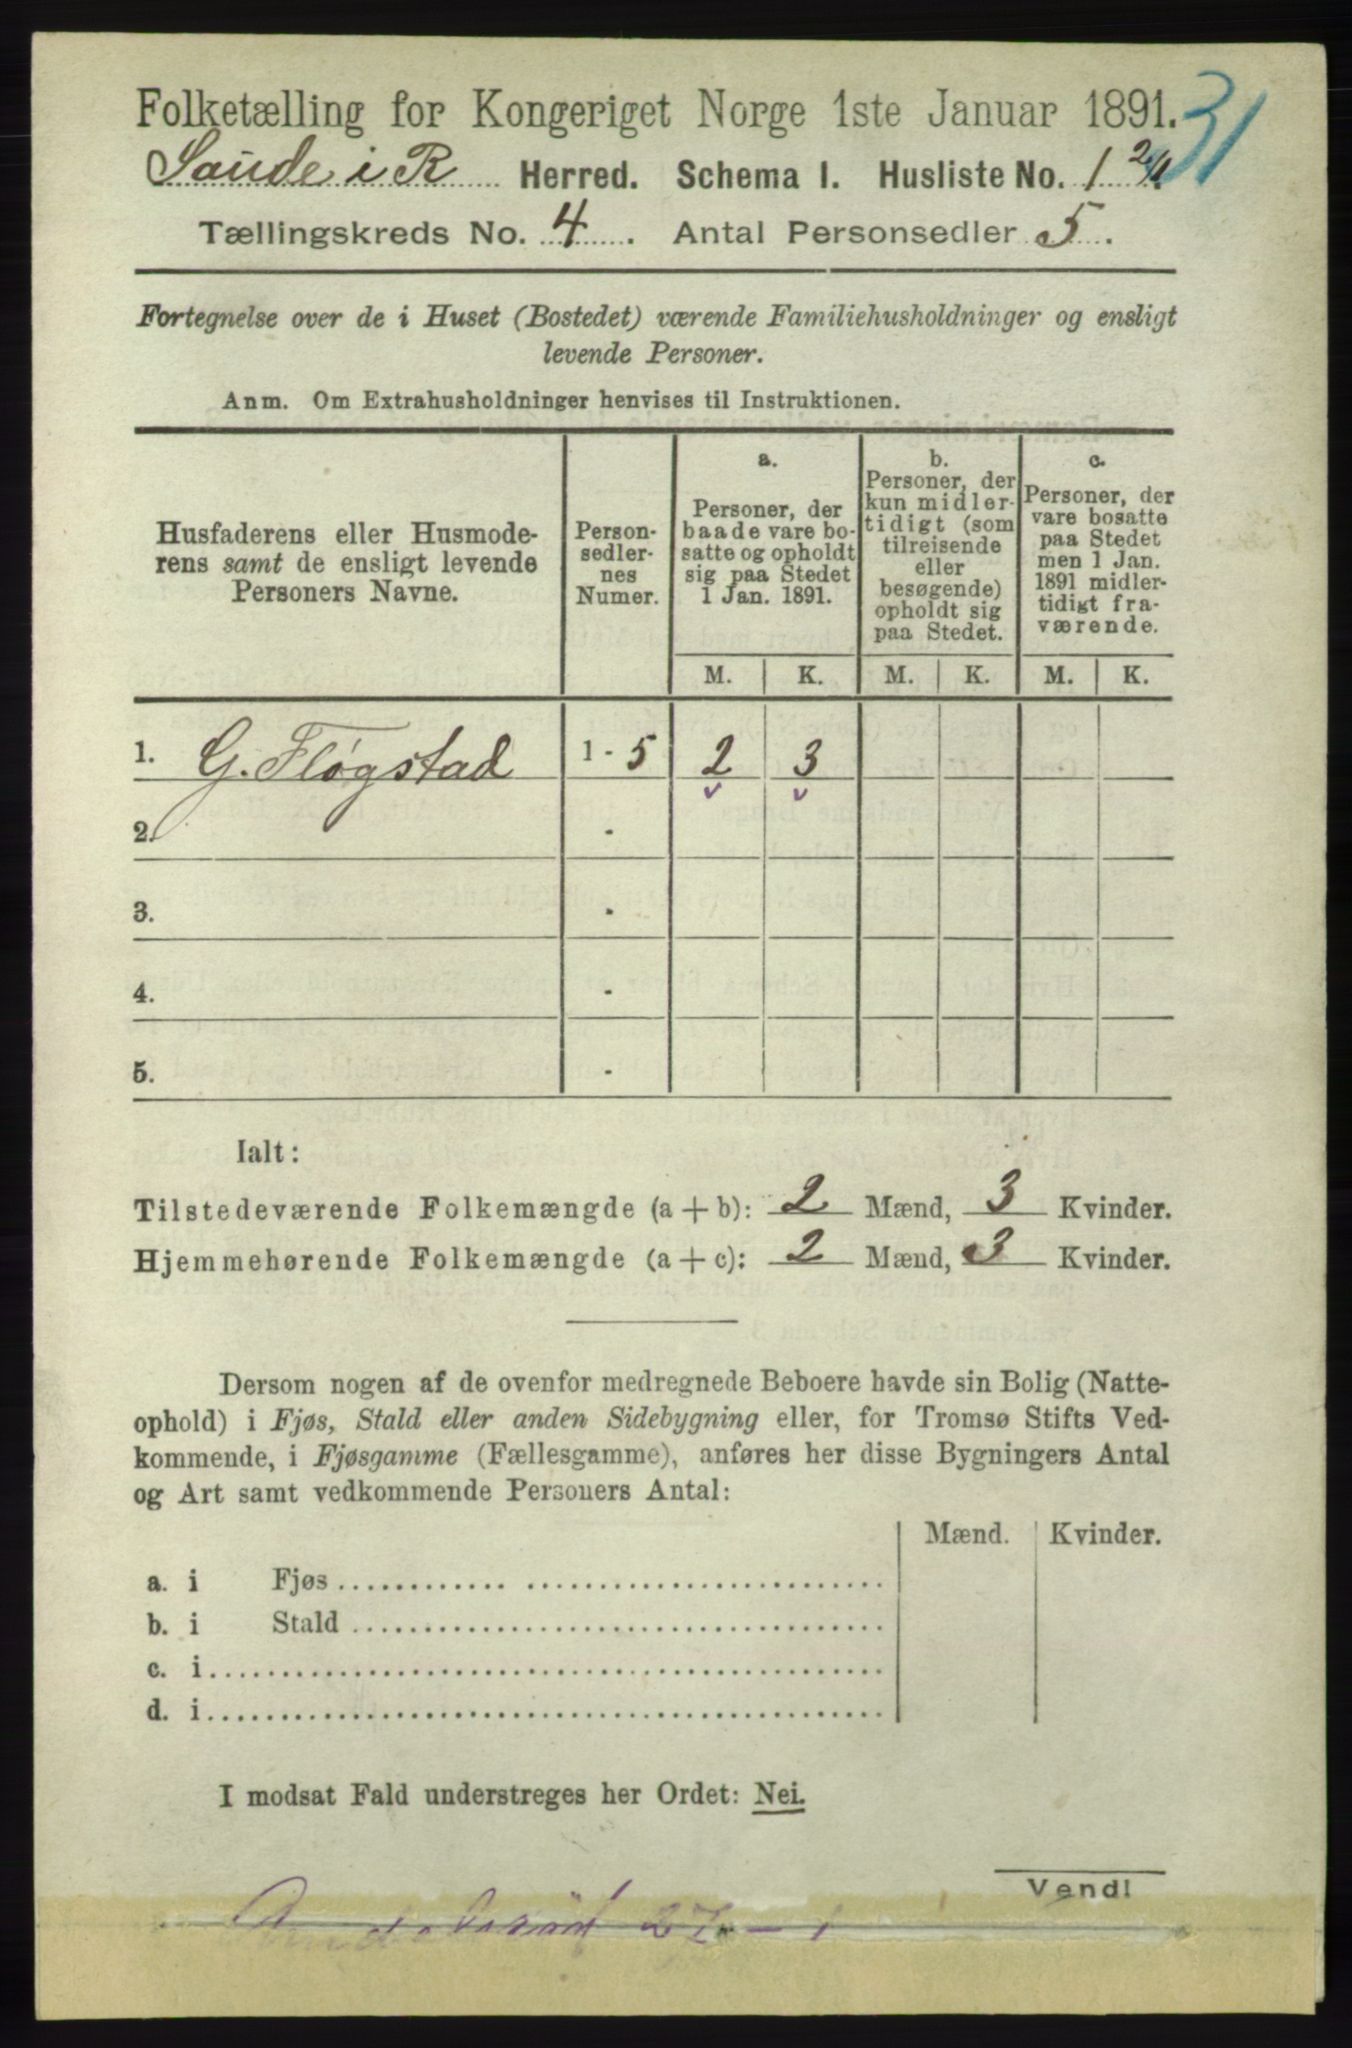 Folketælling for Kongeriget Norge 1ste Januar 1891.
31
Saude i R Herred. Schema I. Husliste No. 1
Tællingskreds No. 4. Antal Personsedler 5.
Fortegnelse over de i Huset (Bostedet) værende Familiehusholdninger og ensligt
levende Personer.
Anm. Om Extrahusholdninger henvises til Instruktionen.
Husfaderens eller Husmode-
rens samt de ensligt levende
Personers Navne.
Person-
sedler-
nes
Numer.
a.
Personer, der
baade vare bo-
satte og opholdt
sig paa Stedet
1 Jan. 1891.
b.
Personer, der
kun midler-
tidigt (som
tilreisende
eller
besøgende)
opholdt sig
paa Stedet.
c.
Personer, der
vare bosatte
paa Stedet
men 1 Jan.
1891 midler-
tidigt fra-
værende.
M. K. M. K. M. K.
1. G. Fløgstad 1 - 5 2 3
2. -
3. -
4. -
5. -
Ialt:
Tilstedeværende Folkemængde (a + b): 2 Mænd, 3 Kvinder.
Hjemmehørende Folkemængde (a + c): 2 Mænd, 3 Kvinder.
Dersom nogen af de ovenfor medregnede Beboere havde sin Bolig (Natte-
ophold) i Fjøs, Stald eller anden Sidebygning eller, for Tromsø Stifts Ved-
kommende, i Fjøsgamme (Fællesgamme), anføres her disse Bygningers Antal
og Art samt vedkommende Personers Antal:
Mænd. Kvinder.
a. i Fjøs
b. i Stald
c. i
d. i
I modsat Fald understreges her Ordet: Nei.
Vend!